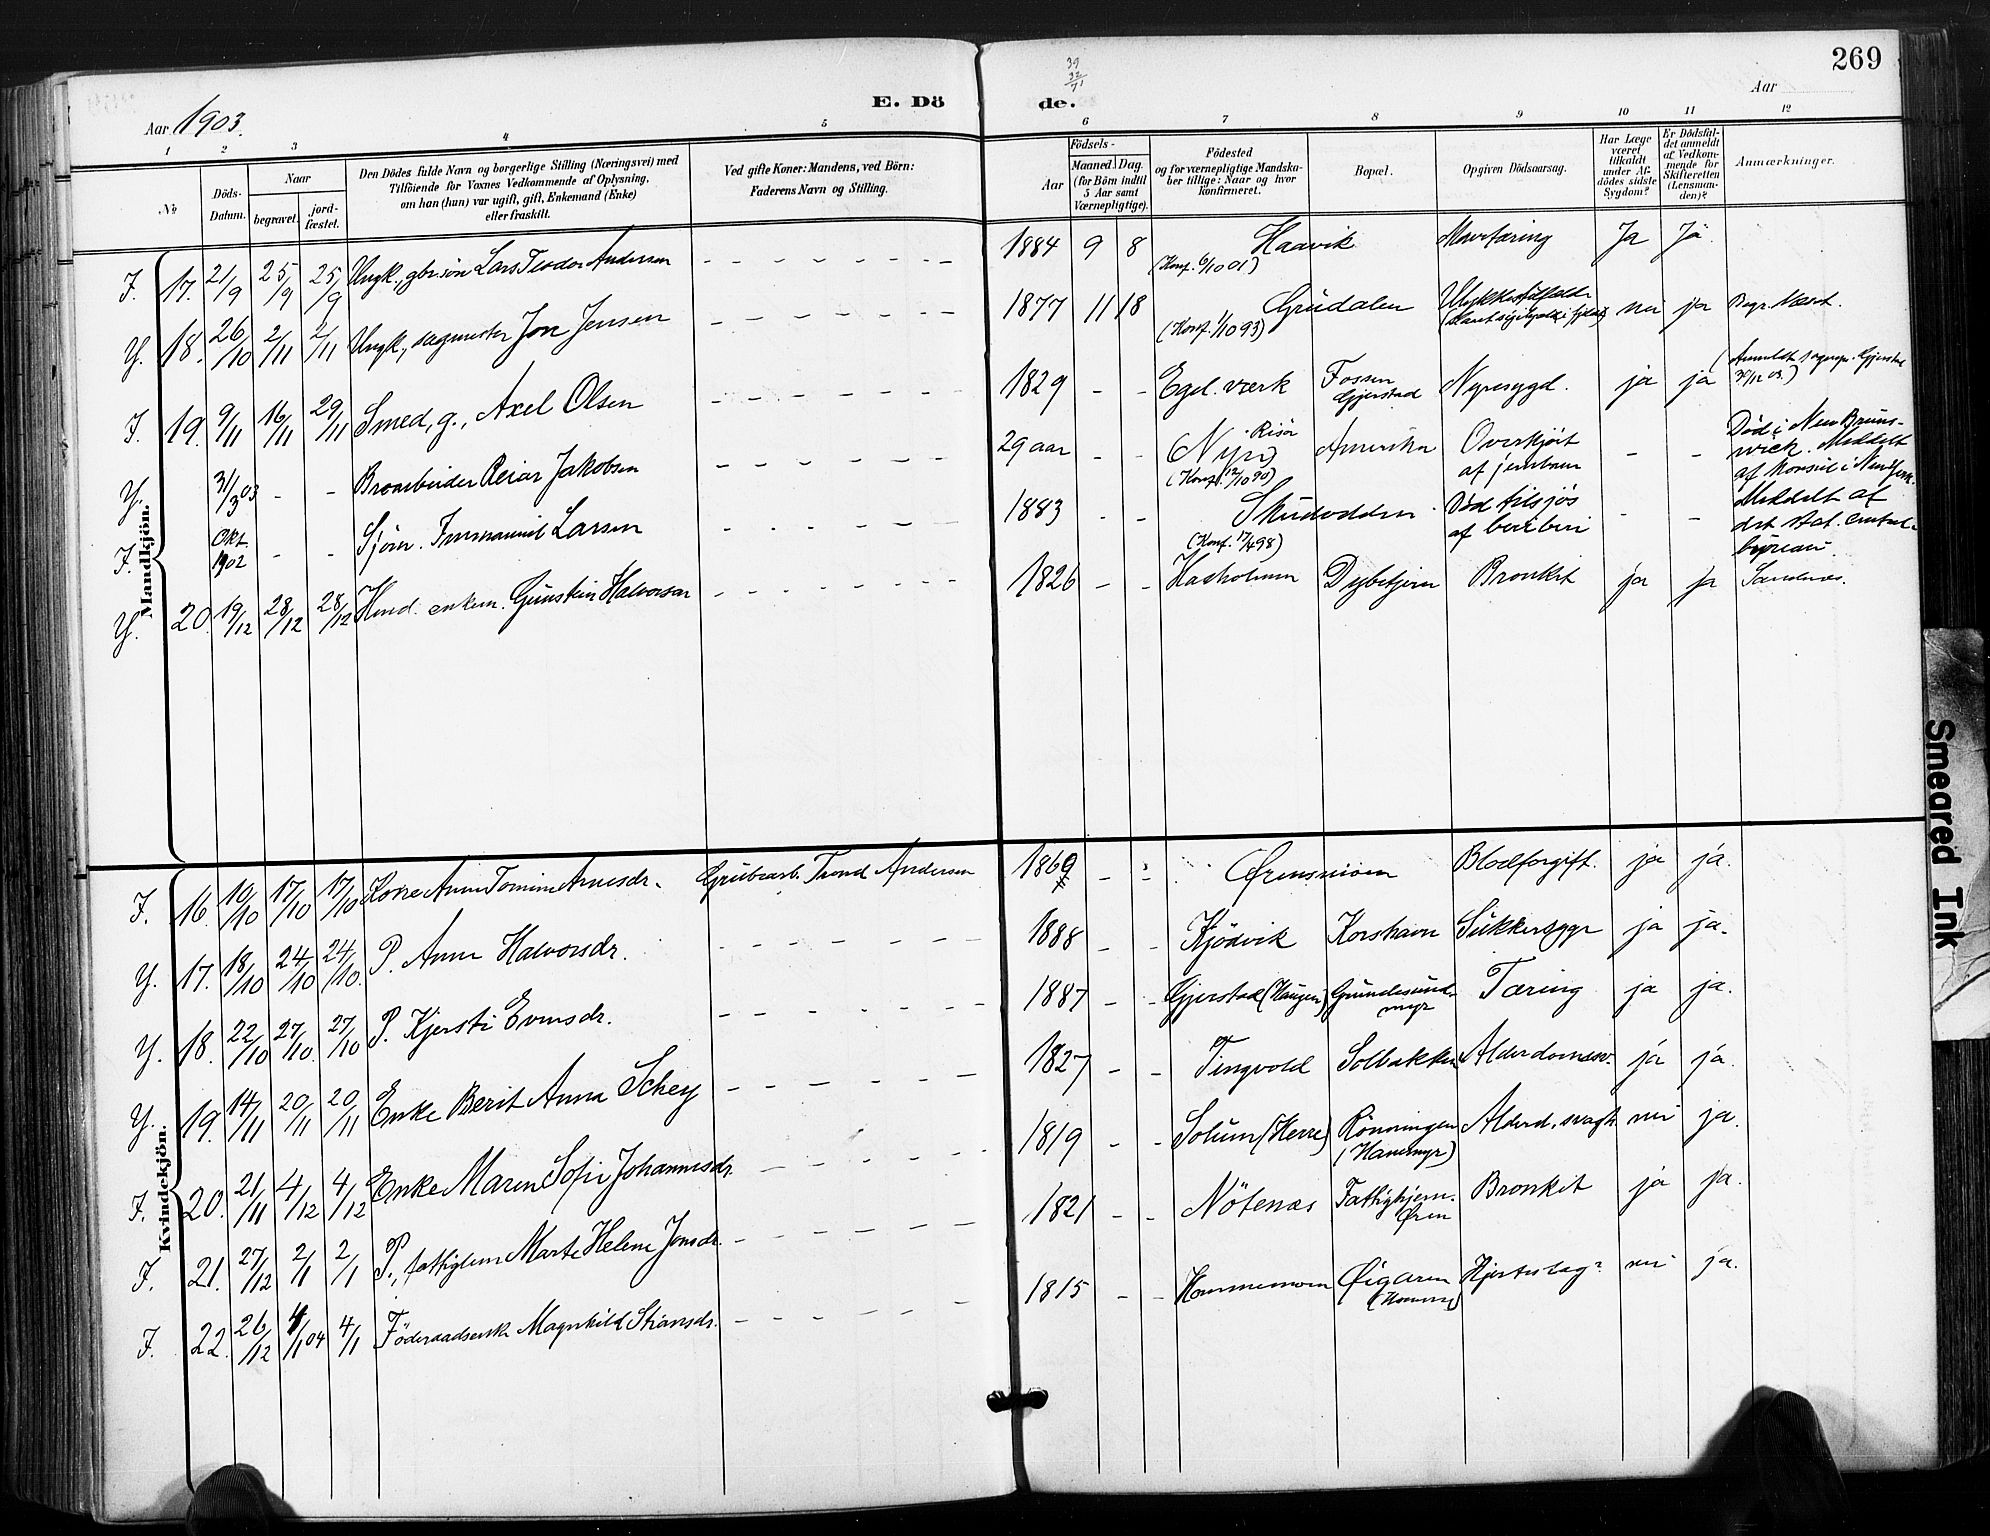 269
39
32
71
Aar 1903.
E. Döde.
Aar
1 2 3 4 5 6 7 8 9 10 11 12
No
Döds-Datum.
Naar
begravet.
jord-fæstet.
Den Dödes fulde Navn og borgerlige Stilling (Næringsvei) med
Tilföiende for Voxnes Vedkommende af Oplysning,
om han (hun) var ugift, gift, Enkemand (Enke)
eller fraskilt.
Ved gifte Koner: Mandens, ved Börn:
Faderens Navn og Stilling.
Födsels-
Aar
Maaned. Dag.
(for Börn indtil
5 Aar samt
Værnepligtige).
Födested
og for værnepligtige Mandska-
ber tillige: Naar og hvor
konfirmeret.
Bopæl.
Opgiven Dödsaarsag.
Har Læge
været
tilkaldt
under Af-
dödes sidste
Sygdom?
Er Dödsfal-
det anmeldt
af Vedkom-
mende for
Skifteretten
(Lensman-
den)?
Anmærkninger.
Mandkjön.
I. 17. 21/9 25/9 25/9 Ungk., gbr.sön Lars Teodor Andersen - - - 1884 9 8 Haavik (Konf. 6/10 01) Mavetæring Ja Ja.
Y. 18. 26/10 2/11 2/11 Ungk., sagmester Jon Jensen - - - 1877 11 18 Grudalen (Konf. 1/10 93) Ulykkestilfælde nei ja Begr. Næset.
I. 19. 9/11 16/11 29/11 Smed, g., Axel Olsen - - - 1829 - - Egel. værk Fossen Gjerstad Nyresygd. ja ja (Anmeldt Gjerstad
Y. 31/3 03 - - Broarbeider Reiar Jakobsen - - - 29 aar Risör (Konf. 12/10 90) Amerika Overkjört af jernbane - - Död i New Bruns-
wick. Meddelt
af konsul i
I. Okt. 1902 - - Sjöm. Immanuel Larsen - - - 1883 - - Skudodden (Konf. 17/4 98) Död tilsjös af beriberi - - Meddelt af
det stat. central-
byreau.
Y. 20. 19/12 28/12 28/12 enkem. Gunstein Halvorsen - - - 1826 - - Hasholmen Dybetjern Bronkit ja ja Sandnes.
Kvindekjön.
I. 16. 10/10 17/10 17/10 Kone Anne Tomine Arnesdr. Grubearb. Trond Andersen 1869 - - Ørensmoen Blodforgift. ja ja.
Y. 17. 18/10 24/10 24/10 P. Anne Halvorsdr. - - - 1888 - - Kjödvik Korshavn Sukkersyge ja ja.
Y. 18. 22/10 27/10 27/10 P. Kjersti Evensdr. - - - 1887 - - Gjerstad (Haugen) Grundesund-
myr Tæring ja ja.
Y. 19. 14/11 20/11 20/11 Enke Berit Anna Schey - - - 1827 - - Tingvold Solbakken Alderdomssv. ja ja.
I. 20. 21/11 4/12 4/12 Enke Maren Sofie Johannesdr. - - - 1819 - - Solum (Herre) Rönningen
(Hanemyr) Alderd.svagh. nei ja.
I. 21. 27/12 2/1 2/1 P., fattiglem Marte Helene Jonsdr. - - - 1821 - - Nötenæs Fattighjem.
Øren Bronkit ja ja.
I. 22. 26/12 4/1 04 4/1 Föderaadsenke Magnhild Stiansdr. - - - 1815 - - Hommemoen Øigaren
(Homme) Hjerteslag? nei ja.
Smeared Ink